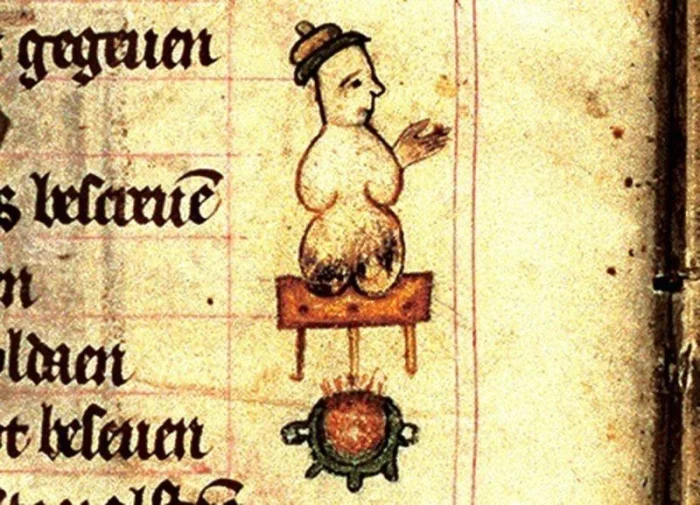 s gegeuen
s beſcreuē
en
oldaen
t beſeuen